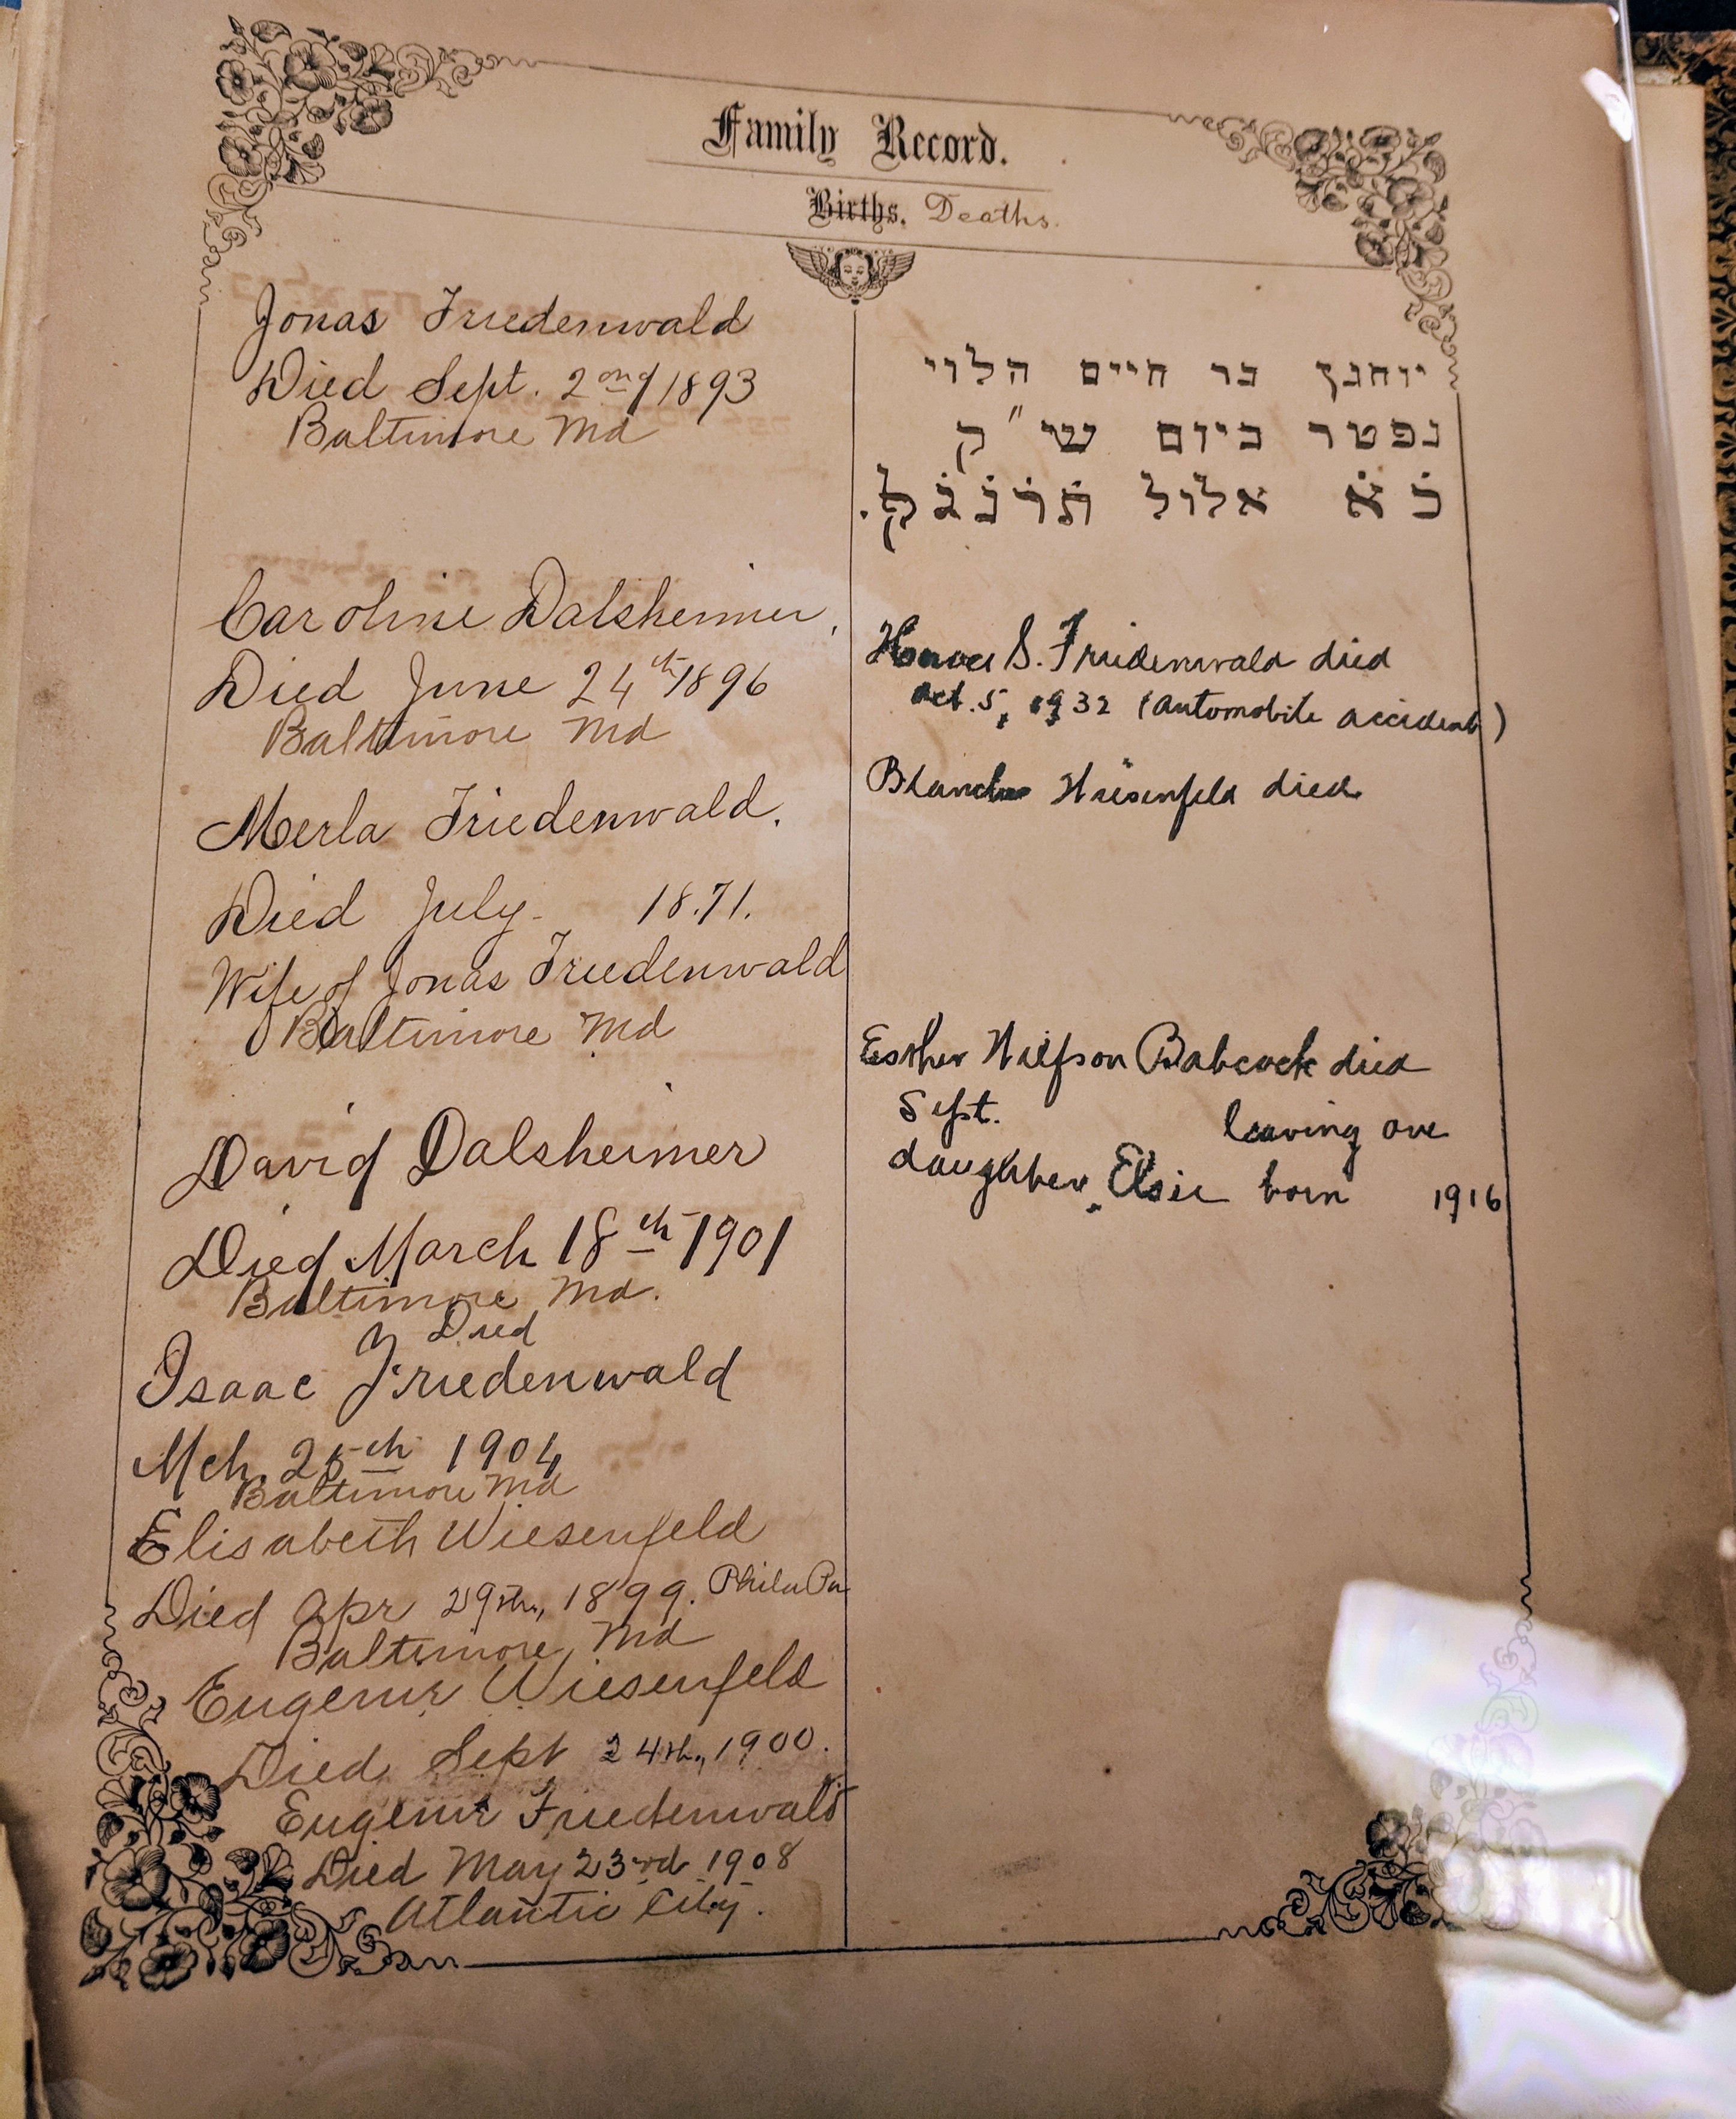 Family Record.
Births. Deaths.
Jonas Friedenwald
Died Sept. 2nd 1893
Baltimore Md
Caroline Dalsheimer,
Died June 24th 1896
Baltimore Md
Merla Friedenwald.
Died July - 1871.
Wife of Jonas Friedenwald
Baltimore Md
David Dalsheimer
Died March 18th 1901
Baltimore Md.
Died
Isaac Friedenwald
Mch. 25th 1904
Baltimore Md
Elisabeth Wiesenfeld
Died Apr 29th, 1899. Phila Pa
Baltimore, Md
Eugenie Wiesenfeld
Died Sept 24th, 1900.
Eugenie Friedenwald
Died May 23rd 1908
Atlantic City.
יוחנן בר חיים הלוי
נפטר ביום ש"ק
כא אלול תרנגל.
S. Friedenwald died
Oct. 5, 1932 (automobile accident)
Blanche Wiesenfeld died
Esther Wolfson Babcock died
Sept. leaving one
daughter, Elsie born 1916